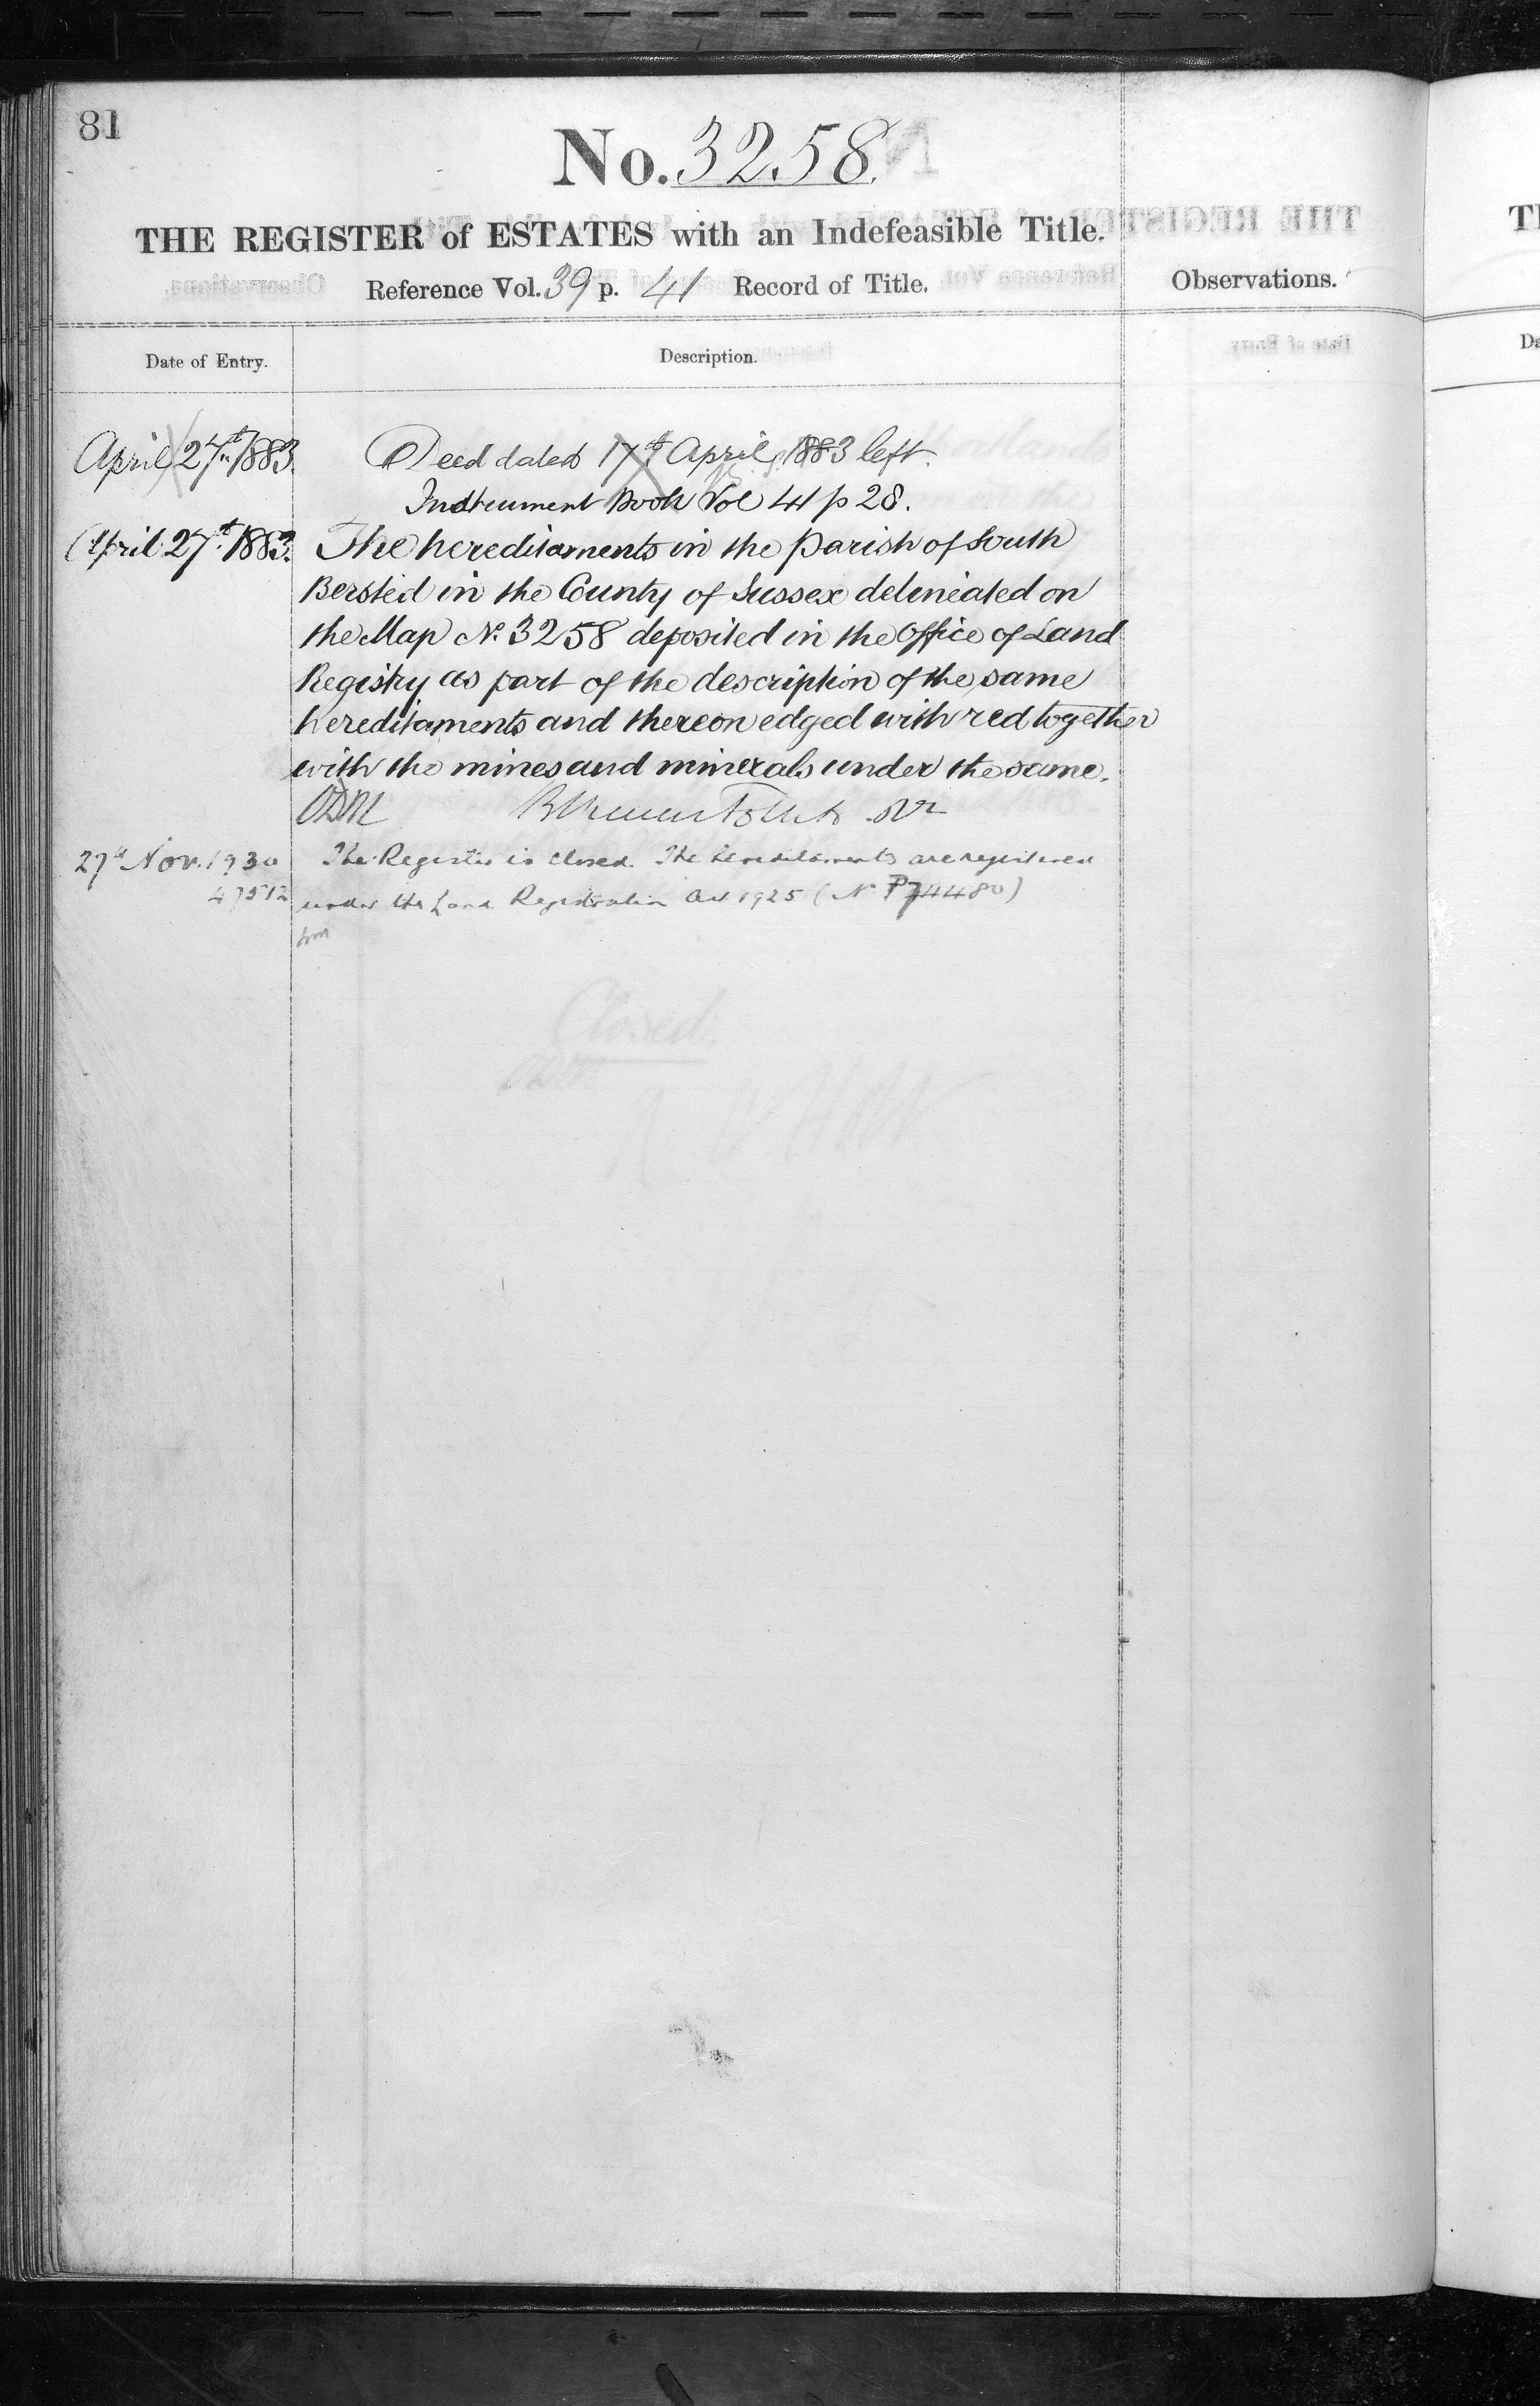 81
No. 3258.
THE REGISTER of ESTATES with an Indefeasible Title.
Reference Vol. 39 p. 41 Record of Title.
Observations.
Date of Entry.
Description.
April 27th 1883. Deed dated 17th April 1883 left.
Instrument Book Vol 41 p 28.
April 27th 1883. The hereditaments in the parish of South
Bersted in the County of Sussex delineated on
the Map No. 3258 deposited in the Office of Land
Registry as part of the description of the same
hereditaments and thereon edged with red together
with the mines and minerals under the same.
27th Nov. 1930 The Register is closed. The hereditaments are registered
47512 under the Land Registration Act 1925 (No. P74480)
Closed.